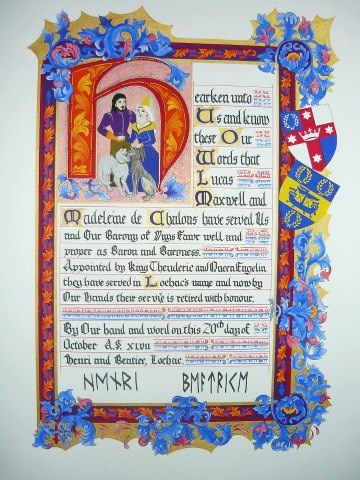 Hearken unto
Us and know
these Our
Words that
Lucas
Maxwell and
Madeleine de Chalons have served Us
and Our Barony of Vigs fare well and
proper as Baron and Baroness.
Appointed by King Theuderic and Queen Engelin
they have served in Lochac's name and now by
Our hands their servie is retired with honour.
By Our hand and word on this 20th day of
October A.S. XLVII
Henri and Beatrice, Lochac.
HENRI BEATRICE